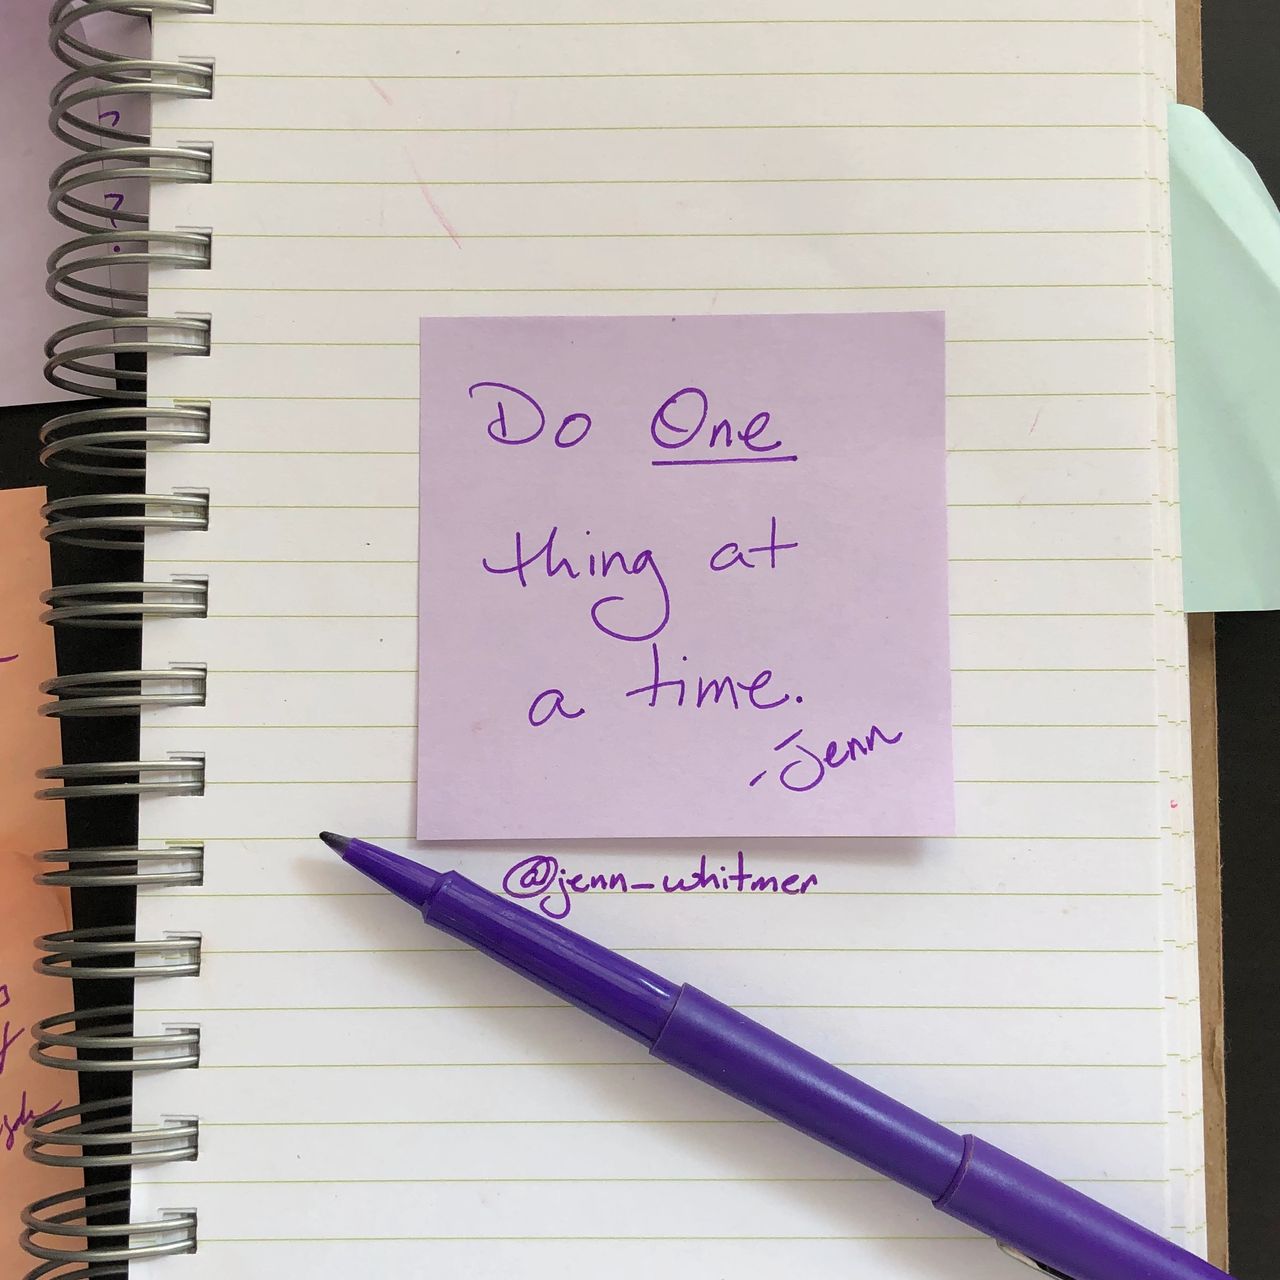 Do One
thing at
a time.
-Jenn
@jenn_whitmer